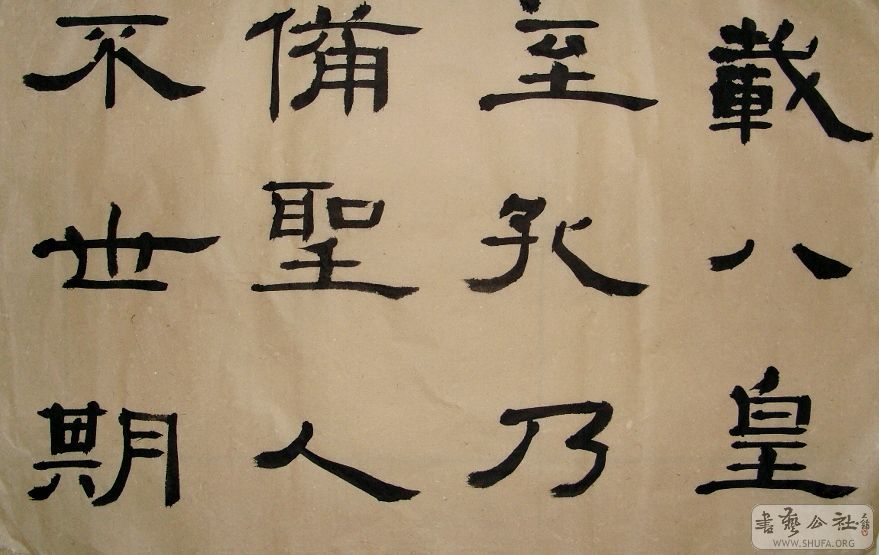 載八皇
至孔乃
備聖人
不世期
書藝公社
WWW.SHUFA.ORG